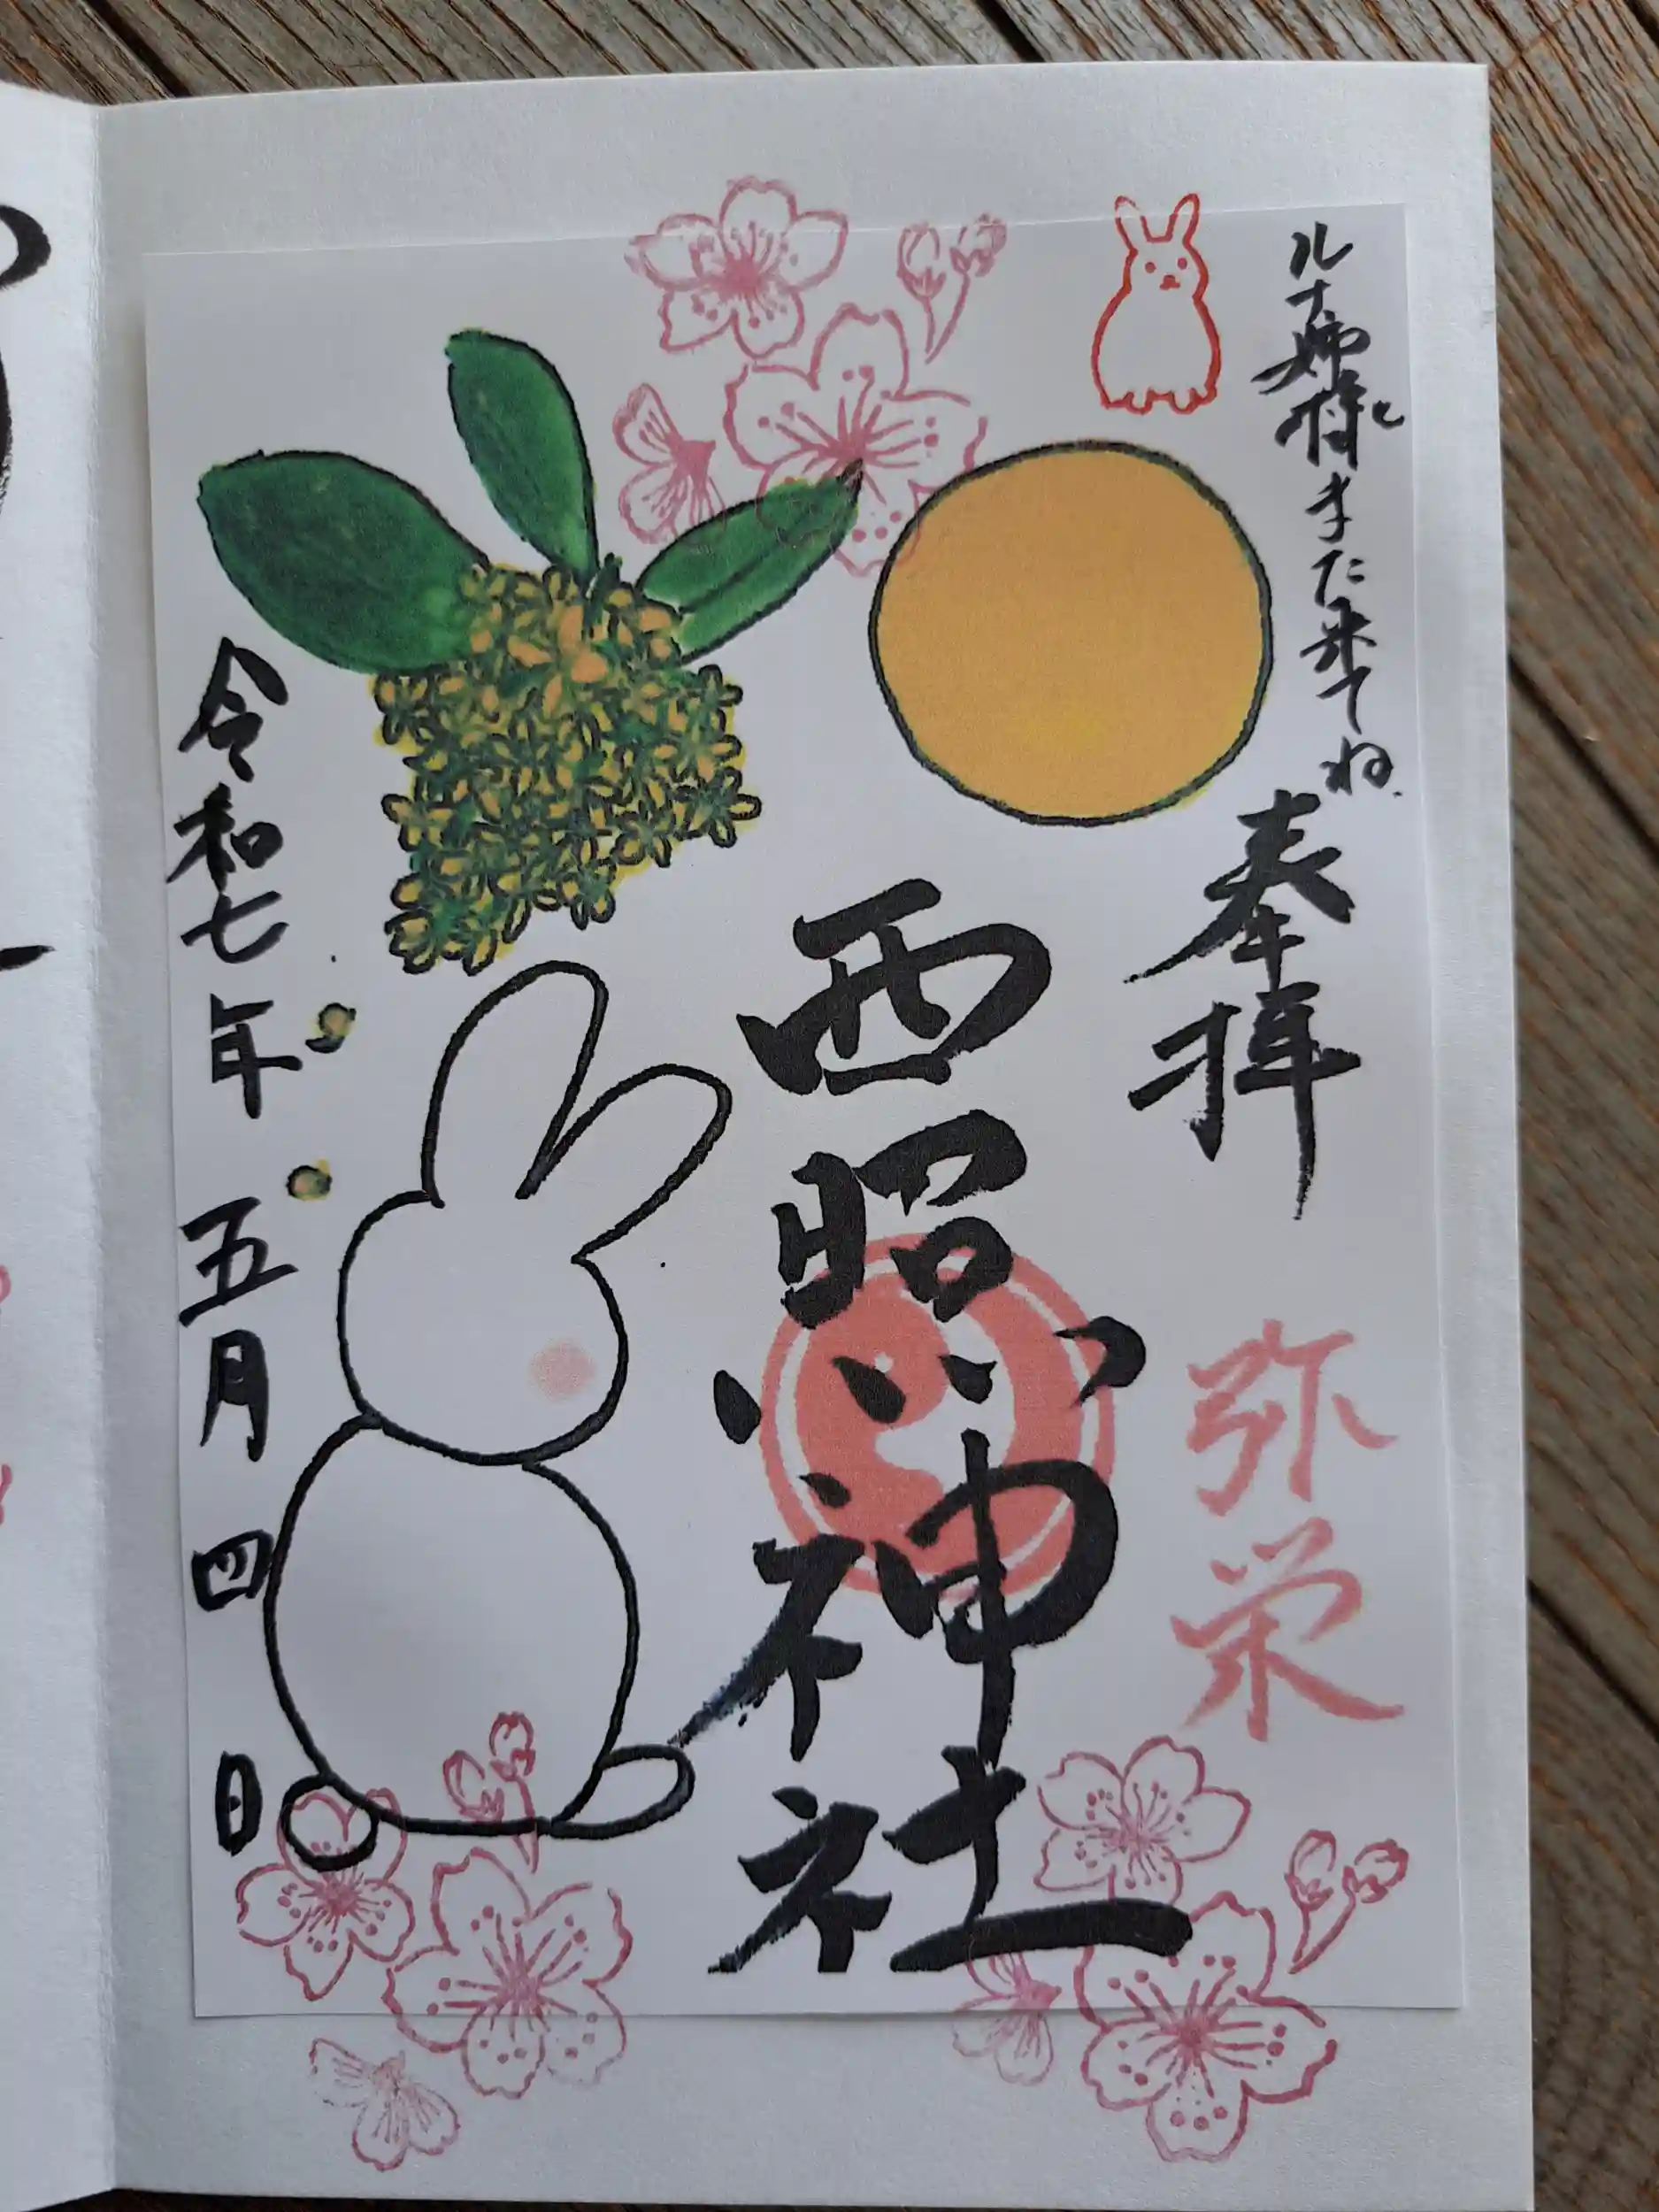 ルナ姉様と
また来てね
奉拝
弥栄
西照神社
令和七年五月四日